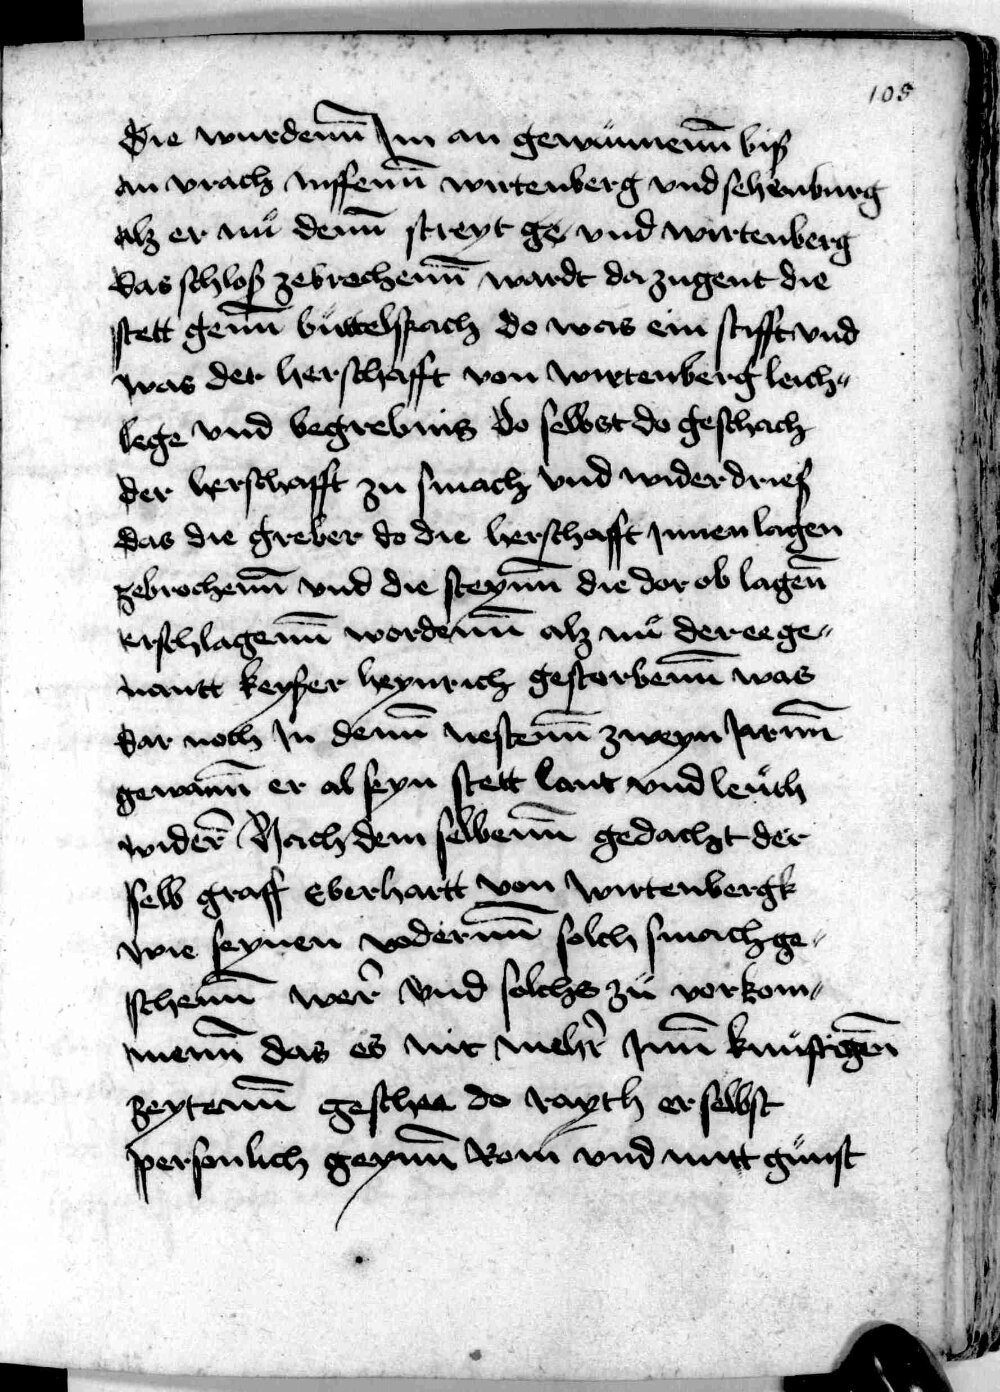 105
Die wurdenn Im an gewunnenn biß
an vrach niffenn wirtenberg vnd sehenburg
alz er nu denn streyt ge vnd wirtenberg
das schloß zebrochenn wardt da zugent die
stett genn buttelspach do was ein stifft vnd
was der herschafft von wirtenberg leich-
lege vnd begrebnis do selbst do geschach
der herschafft zu smach vnd widerdrieß
das die greber do die herschafft Innen lagen
zebrochenn vnd die steynn die dor ob lagen
erschlagenn wordenn alz nu der eege-
nantt keyßer heynrich gestorbenn was
dar noch In denn nestenn zweyn Jarnn
gewann er al seyn stett lant vnd leuth
wider Nach dem selbenn gedacht der
selb graff Eberhartt von wirtenbergk
wie seynen vodernn solch smach ge-
schenn wer vnd solchs zu vorkom-
menn das es nit mehr Inn kunftigen
zeytenn geschee do rayth er selbst
personlich geynn Rom vnd mitt gunst